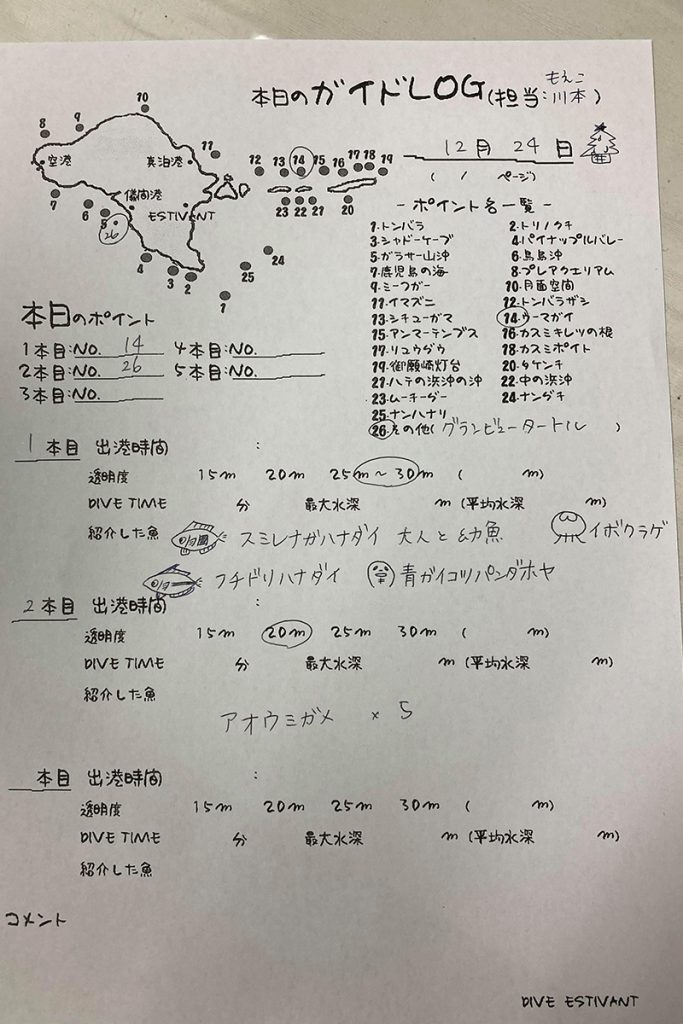 本日のガイドLOG(担当:川本)
もえこ
12月 24日
( / ページ)
10
9
8
11
空港
真泊港
儀間港
ESTIVANT
7
6
5
26
4
3
2
1
25
24
12 13 14 15 16 17 18 19
23 22 21 20
- ポイント名一覧 -
1.トンバラ 2.トリノクチ
3.シャドーケーブ 4.パイナップルバレー
5.ガラサー山沖 6.鳥島沖
7.鹿児島の海 8.プレアクエリアム
9.ミーフガー 10.月面空間
11.イマズニ 12.トンバラザシ
13.シチューガマ 14.ウーマガイ
15.アンマーテンブス 16.カスミキレツの根
17.リュウグウ 18.カスミポイント
19.御願崎灯台 20.タケンチ
21.ハテの浜沖の沖 22.中の浜沖
23.ムーチーグー 24.ナングチ
25.ナンハナリ
26.その他(グランビュータートル)
本日のポイント
1本目:NO. 14 4本目:NO.
2本目:NO. 26 5本目:NO.
3本目:NO.
1本目 出港時間 :
透明度 15m 20m 25m~30m ( m)
DIVE TIME 分 最大水深 m (平均水深 m)
紹介した魚 スミレナガハナダイ 大人と幼魚 イボクラゲ
フチドリハナダイ 青ガイコツパンダホヤ
2本目 出港時間 :
透明度 15m 20m 25m 30m ( m)
DIVE TIME 分 最大水深 m (平均水深 m)
紹介した魚
アオウミガメ × 5
本目 出港時間 :
透明度 15m 20m 25m 30m ( m)
DIVE TIME 分 最大水深 m (平均水深 m)
紹介した魚
コメント
DIVE ESTIVANT